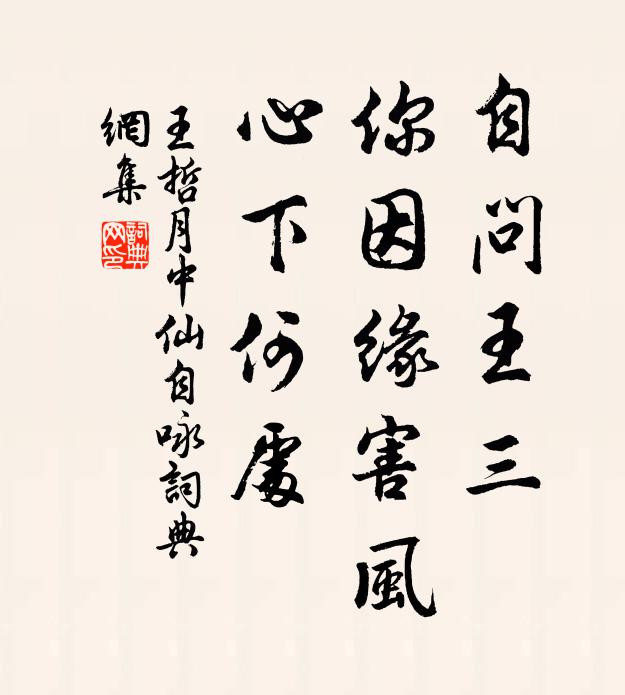 自問王三
你因緣害風
心下何處
王哲月中仙自咏詞典
網集
詞典
网印